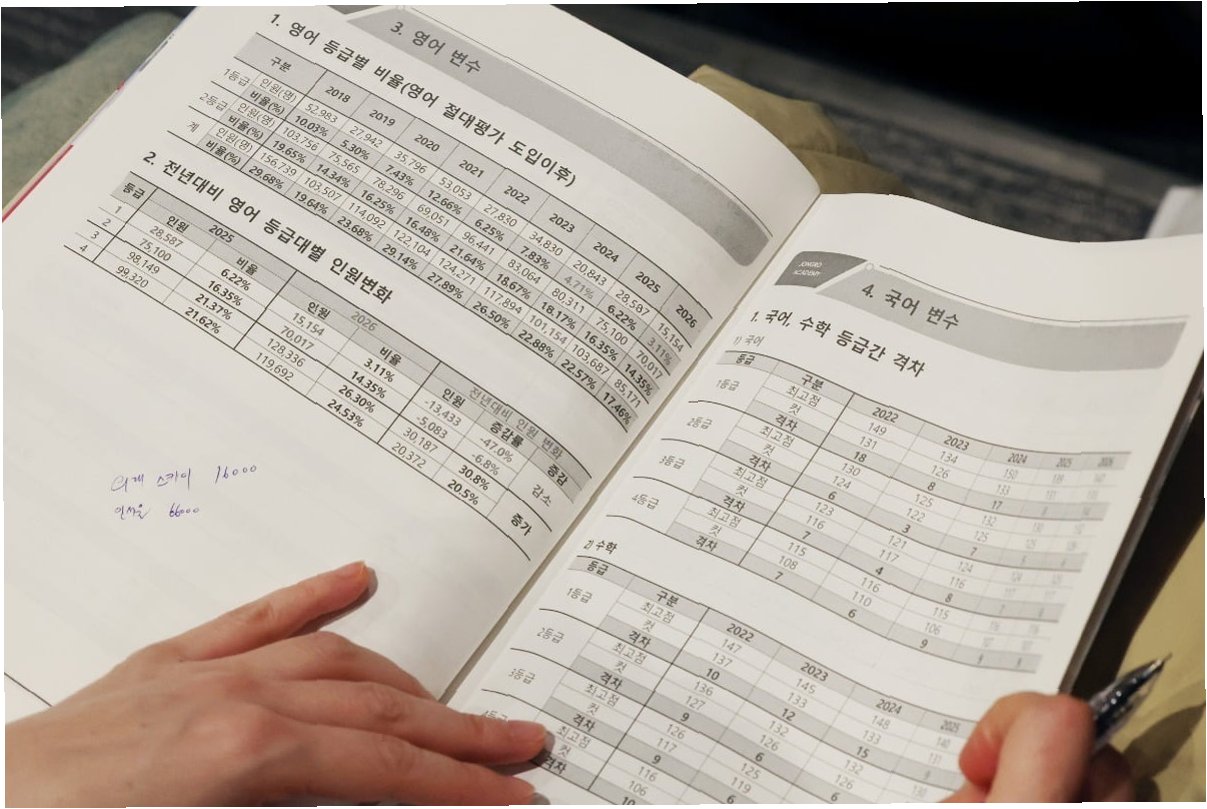 3. 영어 변수
1. 영어 등급별 비율(영어 절대평가 도입이후)
구분 2018 2019 2020 2021 2022 2023 2024 2025 2026
1등급 인원(명) 52,983 27,942 35,796 53,053 27,830 34,830 20,843 28,587 15,154
비율(%) 10.03% 5.30% 7.43% 12.66% 6.25% 7.83% 4.71% 6.22% 3.11%
2등급 인원(명) 103,756 75,565 78,296 69,051 96,441 83,064 80,311 75,100 70,017
비율(%) 19.65% 14.34% 16.25% 16.48% 21.64% 18.67% 18.17% 16.35% 14.35%
계 인원(명) 156,739 103,507 114,092 122,104 124,271 117,894 101,154 103,687 85,171
비율(%) 29.68% 19.64% 23.68% 29.14% 27.89% 26.50% 22.88% 22.57% 17.46%
2. 전년대비 영어 등급대별 인원변화
등급 2025 2026 전년대비 인원 변화
인원 비율 인원 비율 인원 증감률 증감
1 28,587 6.22% 15,154 3.11% -13,433 -47.0% 감소
2 75,100 16.35% 70,017 14.35% -5,083 -6.8%
3 98,149 21.37% 128,336 26.30% 30,187 30.8% 증가
4 99,320 21.62% 119,692 24.53% 20,372 20.5%
의대 스카이 16000
인서울 66000
JONGRO
ACADEMY
4. 국어 변수
1. 국어, 수학 등급간 격차
1) 국어
등급 구분 2022 2023 2024 2025 2026
1등급 최고점 149 134 150 139 147
컷 131 126 133 131 133
격차 18 8 17 8 14
2등급 최고점 130 125 132 130
컷 124 122 125 125 126
격차 6 3 7
3등급 최고점 123 121 124 124 125
컷 116 117 116 117 117
격차 7 4 8 7 8
4등급 최고점 115 116 115 116 116
컷 108 110 106
격차 7 6 9
2) 수학
등급 구분 2022 2023 2024 2025
1등급 최고점 147 145 148 140
컷 137 133 133 131
격차 10 12 15 9
2등급 최고점 136 132 132 130
컷 127 126 126
격차 9 6 6
3등급 최고점 126 125
컷 117 119
격차 9 6
4등급 최고점 116
컷 106
격차 10